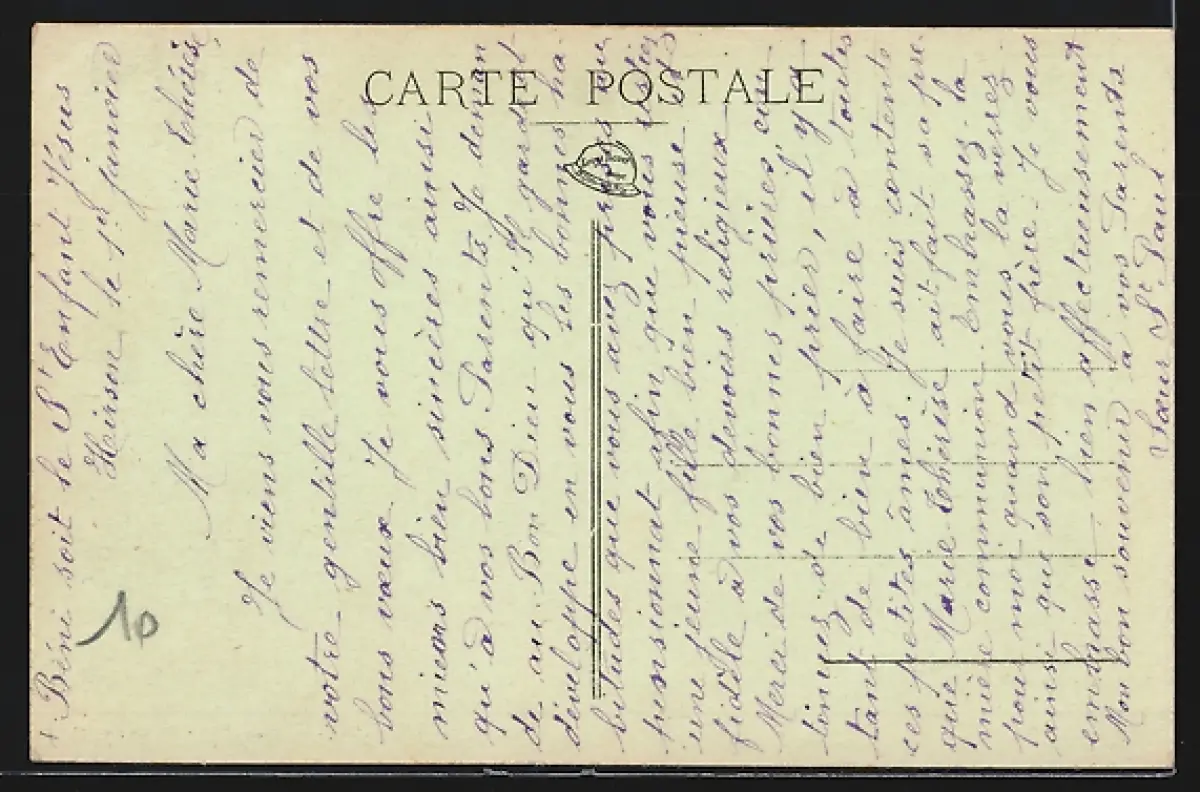 CARTE POSTALE
Béni soit le St Enfant Jésus
Hirson le 1er janvier
Ma chère Marie Thérèse
Je viens vous remercier de
votre gentille lettre et de vos
bons vœux. Je vous offre les
miens bien sincères ainsi
qu'à vos bons Parents. Je deman
de au Bon Dieu qu'Il garde et
développe en vous les bonnes ha
bitudes que vous avez prises au
pensionnat afin que vous restiez
une jeune fille bien pieuse et
fidèle à vos devoirs religieux
Merci de vos bonnes prières con
tinuez de bien prier, il y a
tant de bien à faire à toutes
ces petites âmes. Je suis contente
que Marie Thérèse ait fait sa pre
mière communion. Embrassez-la
pour moi quand vous la verrez
ainsi que son petit frère. Je vous
embrasse bien affectueusement
Mon bon souvenir à vos Parents
Sœur St Paul
10